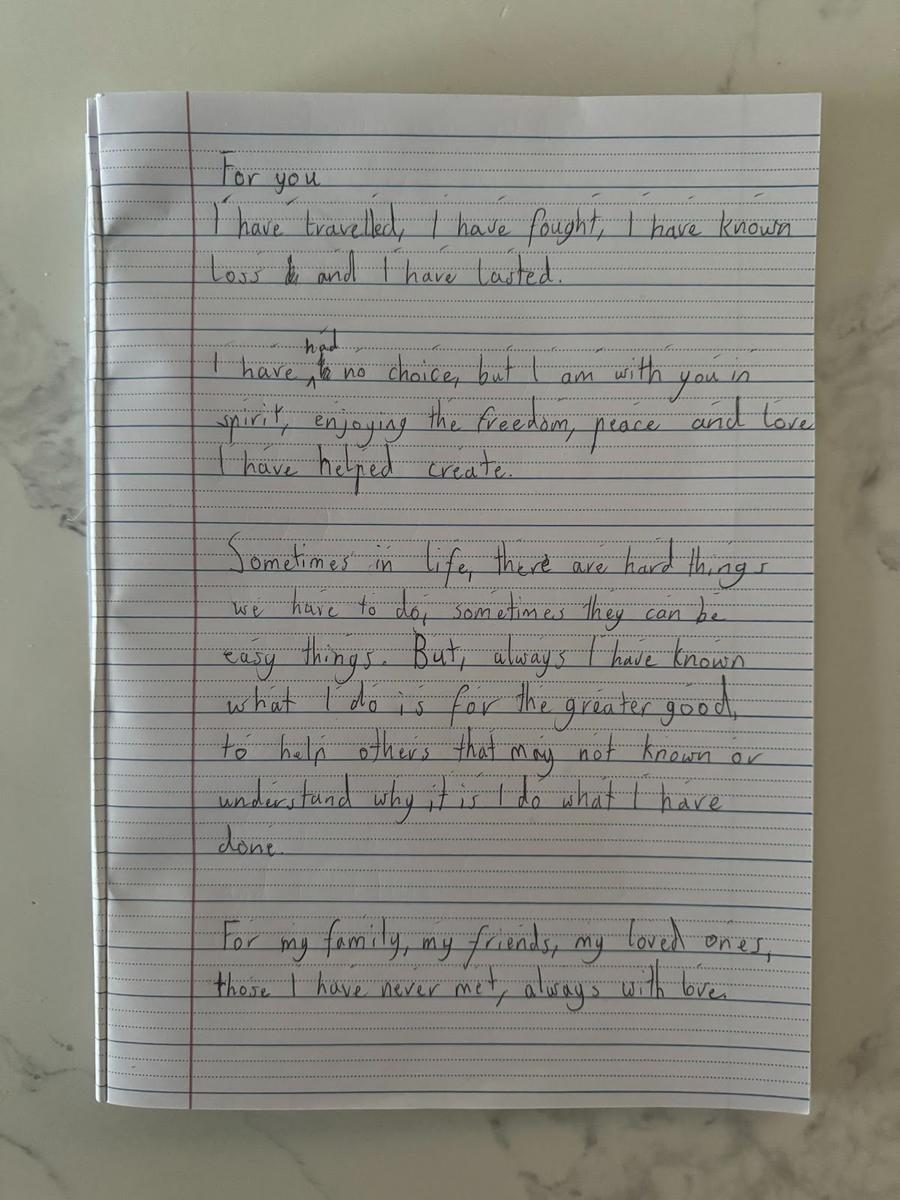 For you
I have travelled, I have fought, I have known
loss and I have lasted.
I have had no choice, but I am with you in
spirit, enjoying the freedom, peace and love
I have helped create.
Sometimes in life, there are hard things
we have to do, sometimes they can be
easy things. But, always I have known
what I do is for the greater good,
to help others that may not known or
understand why it is I do what I have
done.
For my family, my friends, my loved ones,
those I have never met, always with love.